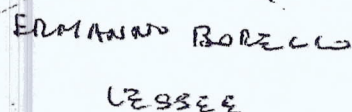 ERMANNO BORELLO
LESSEE